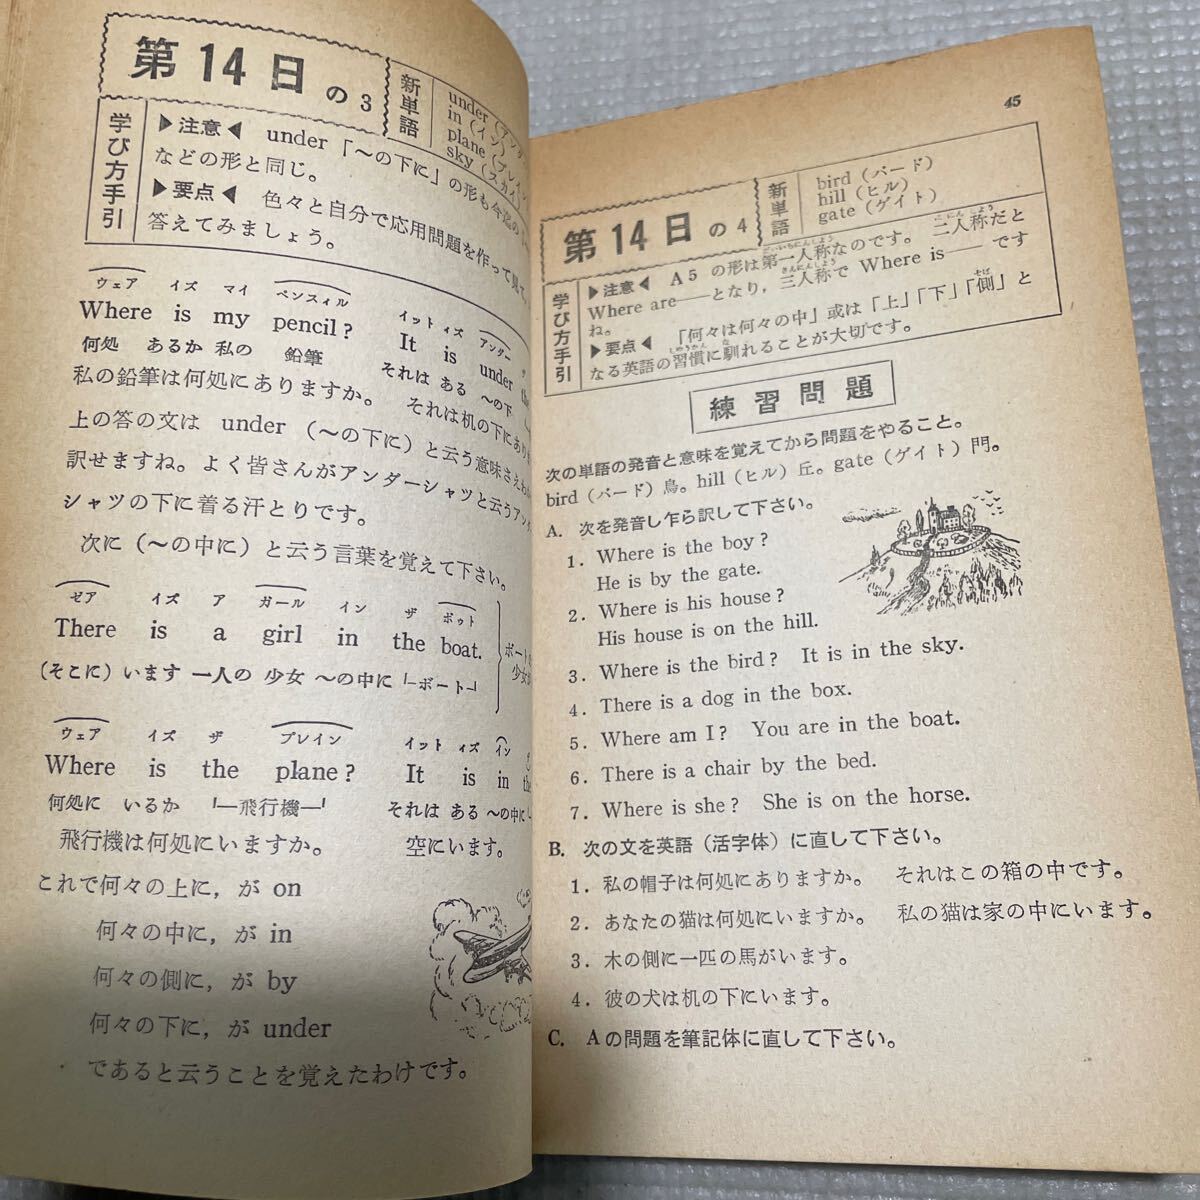 第14日の3
新単語
under（アンダ
in（イン）
plane（プレイン
sky（スカイ）
学び方手引
▶注意◀ under「〜の下に」の形も今迄の
などの形と同じ。
▶要点◀ 色々と自分で応用問題を作って見て、
答えてみましょう。
ウェア イズ マイ ペンスィル イット イズ アンダー ザ
Where is my pencil? It is under the
何処 あるか 私の 鉛筆 それは ある 〜の下
私の鉛筆は何処にありますか。 それは机の下にあり
上の答の文は under（〜の下に）と云う意味さえわか
訳せますね。よく皆さんがアンダーシャツと云うアン
シャツの下に着る汗とりです。
次に（〜の中に）と云う言葉を覚えて下さい。
ゼア イズ ア ガール イン ザ ボゥト
There is a girl in the boat.
(そこに) います 一人の 少女 〜の中に └ボート┘
ボート
少女
ウェア イズ ザ プレイン イット イズ イン ザ
Where is the plane? It is in the
何処に いるか └─飛行機─┘ それは ある 〜の中に
飛行機は何処にいますか。 空にいます。
これで何々の上に，が on
何々の中に，が in
何々の側に，が by
何々の下に，が under
であると云うことを覚えたわけです。
45
第14日の4
新単語
bird（バード）
hill（ヒル）
gate（ゲイト）
学び方手引
▶注意◀ A5 の形は第一人称なのです。 二人称だと
Where are──となり，三人称で Where is── です
ね。
▶要点◀ 「何々は何々の中」或は「上」「下」「側」と
なる英語の習慣に馴れることが大切です。
練習問題
次の単語の発音と意味を覚えてから問題をやること。
bird（バード）鳥。hill（ヒル）丘。gate（ゲイト）門。
A. 次を発音し乍ら訳して下さい。
1. Where is the boy?
He is by the gate.
2. Where is his house?
His house is on the hill.
3. Where is the bird? It is in the sky.
4. There is a dog in the box.
5. Where am I? You are in the boat.
6. There is a chair by the bed.
7. Where is she? She is on the horse.
B. 次の文を英語（活字体）に直して下さい。
1. 私の帽子は何処にありますか。 それはこの箱の中です。
2. あなたの猫は何処にいますか。 私の猫は家の中にいます。
3. 木の側に一匹の馬がいます。
4. 彼の犬は机の下にいます。
C. Aの問題を筆記体に直して下さい。